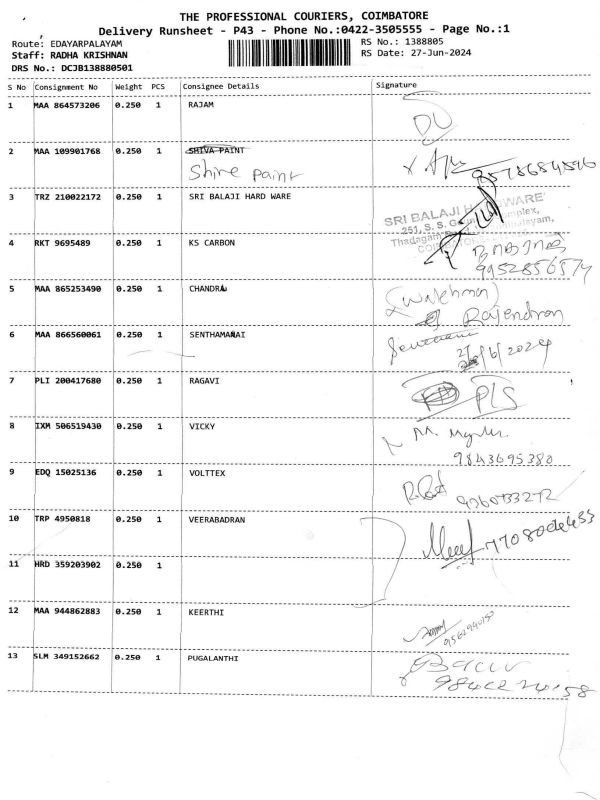 THE PROFESSIONAL COURIERS, COIMBATORE
Delivery Runsheet - P43 - Phone No.:0422-3505555 - Page No.:1
Route: EDAYARPALAYAM RS No.: 1388805
Staff: RADHA KRISHNAN RS Date: 27-Jun-2024
DRS No.: DCJB138880501
S No Consignment No Weight PCS Consignee Details Signature
1 MAA 864573206 0.250 1 RAJAM
DU
2 MAA 109901768 0.250 1 SHIVA PAINT
Shine paint
3 TRZ 210022172 0.250 1 SRI BALAJI HARD WARE
SRI BALAJI HARDWARE
251, S. S. Complex,
4 RKT 9695489 0.250 1 KS CARBON
9952856574
5 MAA 865253490 0.250 1 CHANDRA
(Watchman)
Rajendran
6 MAA 866560061 0.250 1 SENTHAMARAI
27/6/2024
7 PLI 200417680 0.250 1 RAGAVI
PLS
8 IXM 506519430 0.250 1 VICKY
9843695380
9 EDQ 15025136 0.250 1 VOLTTEX
10 TRP 4950818 0.250 1 VEERABADRAN
11 HRD 359203902 0.250 1
12 MAA 944862883 0.250 1 KEERTHI
13 SLM 349152662 0.250 1 PUGALANTHI